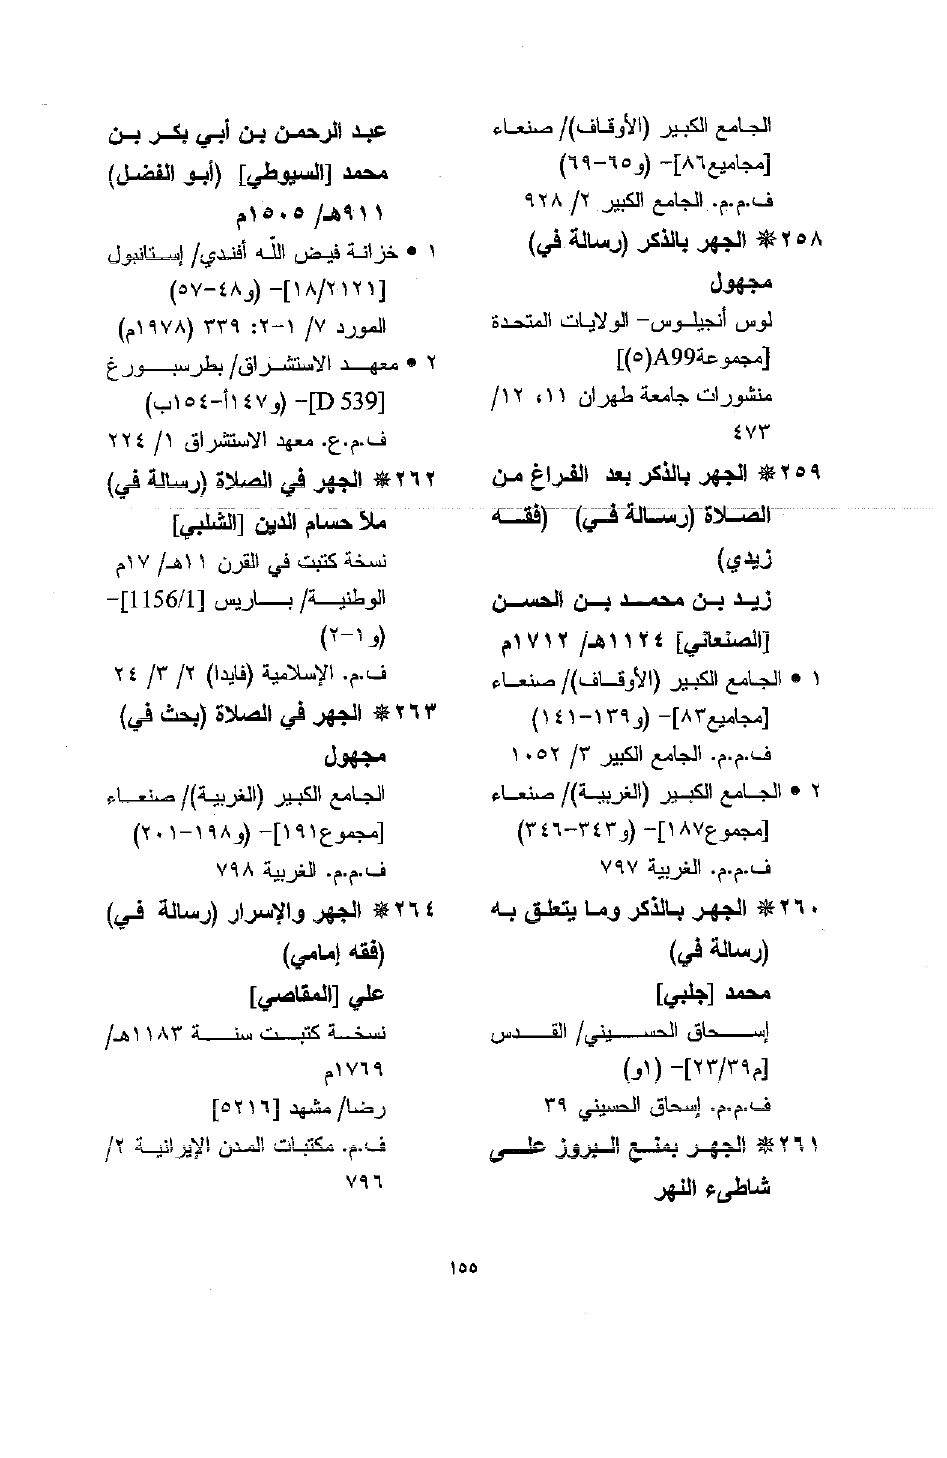 الجامع الكبير (الأوقاف)/ صنعاء
[مجاميع٨٦]- (و٦٥-٦٩)
ف.م.م. الجامع الكبير ٢/ ٩٢٨
٢٥٨* الجهر بالذكر (رسالة في)
مجهول
لوس أنجيلوس- الولايات المتحدة
[مجموعةA99(٥)]
منشورات جامعة طهران ١١، ١٢/
٤٧٣
٢٥٩* الجهر بالذكر بعد الفراغ من
الصلاة (رسالة في) (فقه
زيدي)
زيد بن محمد بن الحسن
[الصنعاني] ١١٢٤هـ/ ١٧١٢م
١ • الجامع الكبير (الأوقاف)/ صنعاء
[مجاميع٨٣]- (و١٣٩-١٤١)
ف.م.م. الجامع الكبير ٣/ ١٠٥٢
٢ • الجامع الكبير (الغربية)/ صنعاء
[مجموع١٨٧]- (و٣٤٣-٣٤٦)
ف.م.م. الغربية ٧٩٧
٢٦٠* الجهر بالذكر وما يتعلق به
(رسالة في)
محمد [جلبي]
إسحاق الحسيني/ القدس
[م٢٣/٣٩]- (١و)
ف.م.م. إسحاق الحسيني ٣٩
٢٦١* الجهر بمنع البروز على
شاطىء النهر
عبد الرحمن بن أبي بكر بن
محمد [السيوطي] (أبو الفضل)
٩١١هـ/ ١٥٠٥م
١ • خزانة فيض الله أفندي/ إستانبول
[١٨/٢١٢١]- (و٤٨-٥٧)
المورد ٧/ ١-٢: ٣٣٩ (١٩٧٨م)
٢ • معهد الاستشراق/ بطرسبورغ
[D 539]- (و١٤٧أ-١٥٤ب)
ف.م.ع. معهد الاستشراق ١/ ٢٢٤
٢٦٢* الجهر في الصلاة (رسالة في)
ملا حسام الدين [الشلبي]
نسخة كتبت في القرن ١١هـ/ ١٧م
الوطنية/ باريس [1156/1]-
(و١-٢)
ف.م. الإسلامية (فايدا) ٢/ ٣/ ٢٤
٢٦٣* الجهر في الصلاة (بحث في)
مجهول
الجامع الكبير (الغربية)/ صنعاء
[مجموع١٩١]- (و١٩٨-٢٠١)
ف.م.م. الغربية ٧٩٨
٢٦٤* الجهر والإسرار (رسالة في)
(فقه إمامي)
علي [المقاصي]
نسخة كتبت سنة ١١٨٣هـ/
١٧٦٩م
رضا/ مشهد [٥٢١٦]
ف.م. مكتبات المدن الإيرانية ٢/
٧٩٦
١٥٥